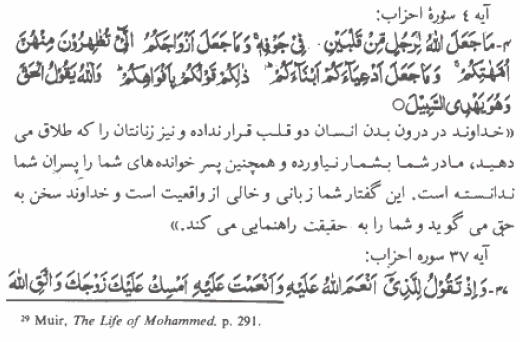 آیه ٤ سورهٔ احزاب:
٤- مَا جَعَلَ اللهُ لِرَجُلٍ مِّنْ قَلْبَيْنِ فِيْ جَوْفِهٖ ۚ وَمَا جَعَلَ اَزْوَاجَكُمُ الّٰٓـِٔيْ تُظٰهِرُوْنَ مِنْهُنَّ
اُمَّهٰتِكُمْ ۚ وَمَا جَعَلَ اَدْعِيَآءَكُمْ اَبْنَآءَكُمْ ؕ ذٰلِكُمْ قَوْلُكُمْ بِاَفْوَاهِكُمْ ؕ وَاللهُ يَقُوْلُ الْحَقَّ
وَهُوَ يَهْدِي السَّبِيْلَ ○
«خداوند در درون بدن انسان دو قلب قرار نداده و نیز زنانتان را که طلاق می
دهید، مادر شما بشمار نیاورده و همچنین پسر خوانده های شما را پسران شما
ندانسته است. این گفتار شما زبانی و خالی از واقعیت است و خداوند سخن به
حق می گوید و شما را به حقیقت راهنمایی می کند.»
آیه ٣٧ سوره احزاب:
٣٧- وَاِذْ تَقُوْلُ لِلَّذِيْٓ اَنْعَمَ اللهُ عَلَيْهِ وَاَنْعَمْتَ عَلَيْهِ اَمْسِكْ عَلَيْكَ زَوْجَكَ وَاتَّقِ اللهَ
29 Muir, The Life of Mohammed. p. 291.